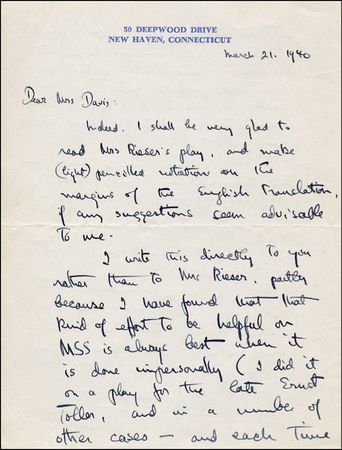 50 DEEPWOOD DRIVE
NEW HAVEN, CONNECTICUT
March 21. 1940
Dear Mrs Davis:
Indeed. I shall be very glad to
read Mrs Rieser's play, and make
(light) pencilled notation on the
margins of the English Translation,
if any suggestions seem advisable
to me.
I write this directly to you
rather than to Mrs Rieser, partly
because I have found that that
kind of effort to be helpful on
MSS is always best when it
is done impersonally (I did it
on a play for the late Ernst
Toller, and in a number of
other cases — and each time